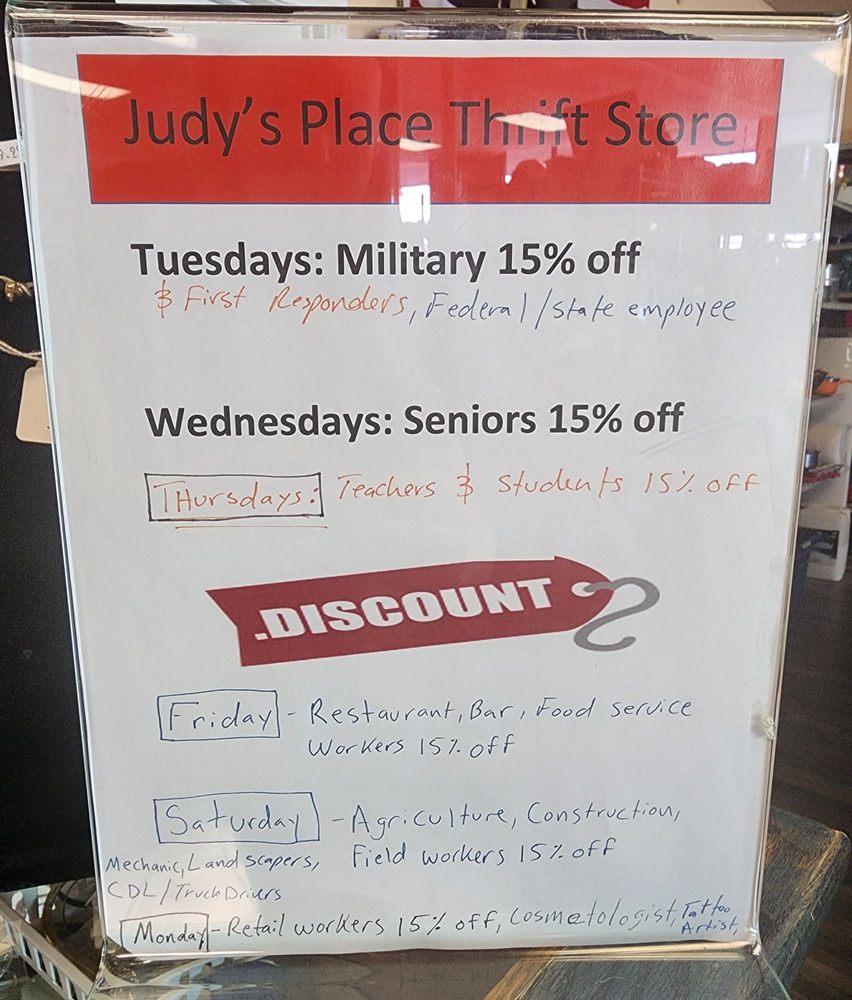 Judy's Place Thrift Store
Tuesdays: Military 15% off
& First Responders, Federal/State employee
Wednesdays: Seniors 15% off
THursdays: Teachers & Students 15% OFF
.DISCOUNT
Friday - Restaurant, Bar, Food service
Workers 15% off
Saturday - Agriculture, Construction,
Field workers 15% off
Mechanic, Landscapers,
CDL/Truck Drivers
Monday - Retail workers 15% off, Cosmetologist, Tattoo
Artist,